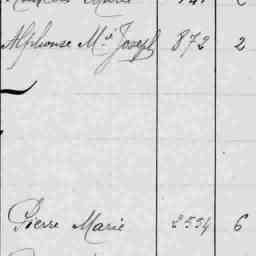 Alphonse M.ie Joseph 872 2
Pierre Marie 2534 6